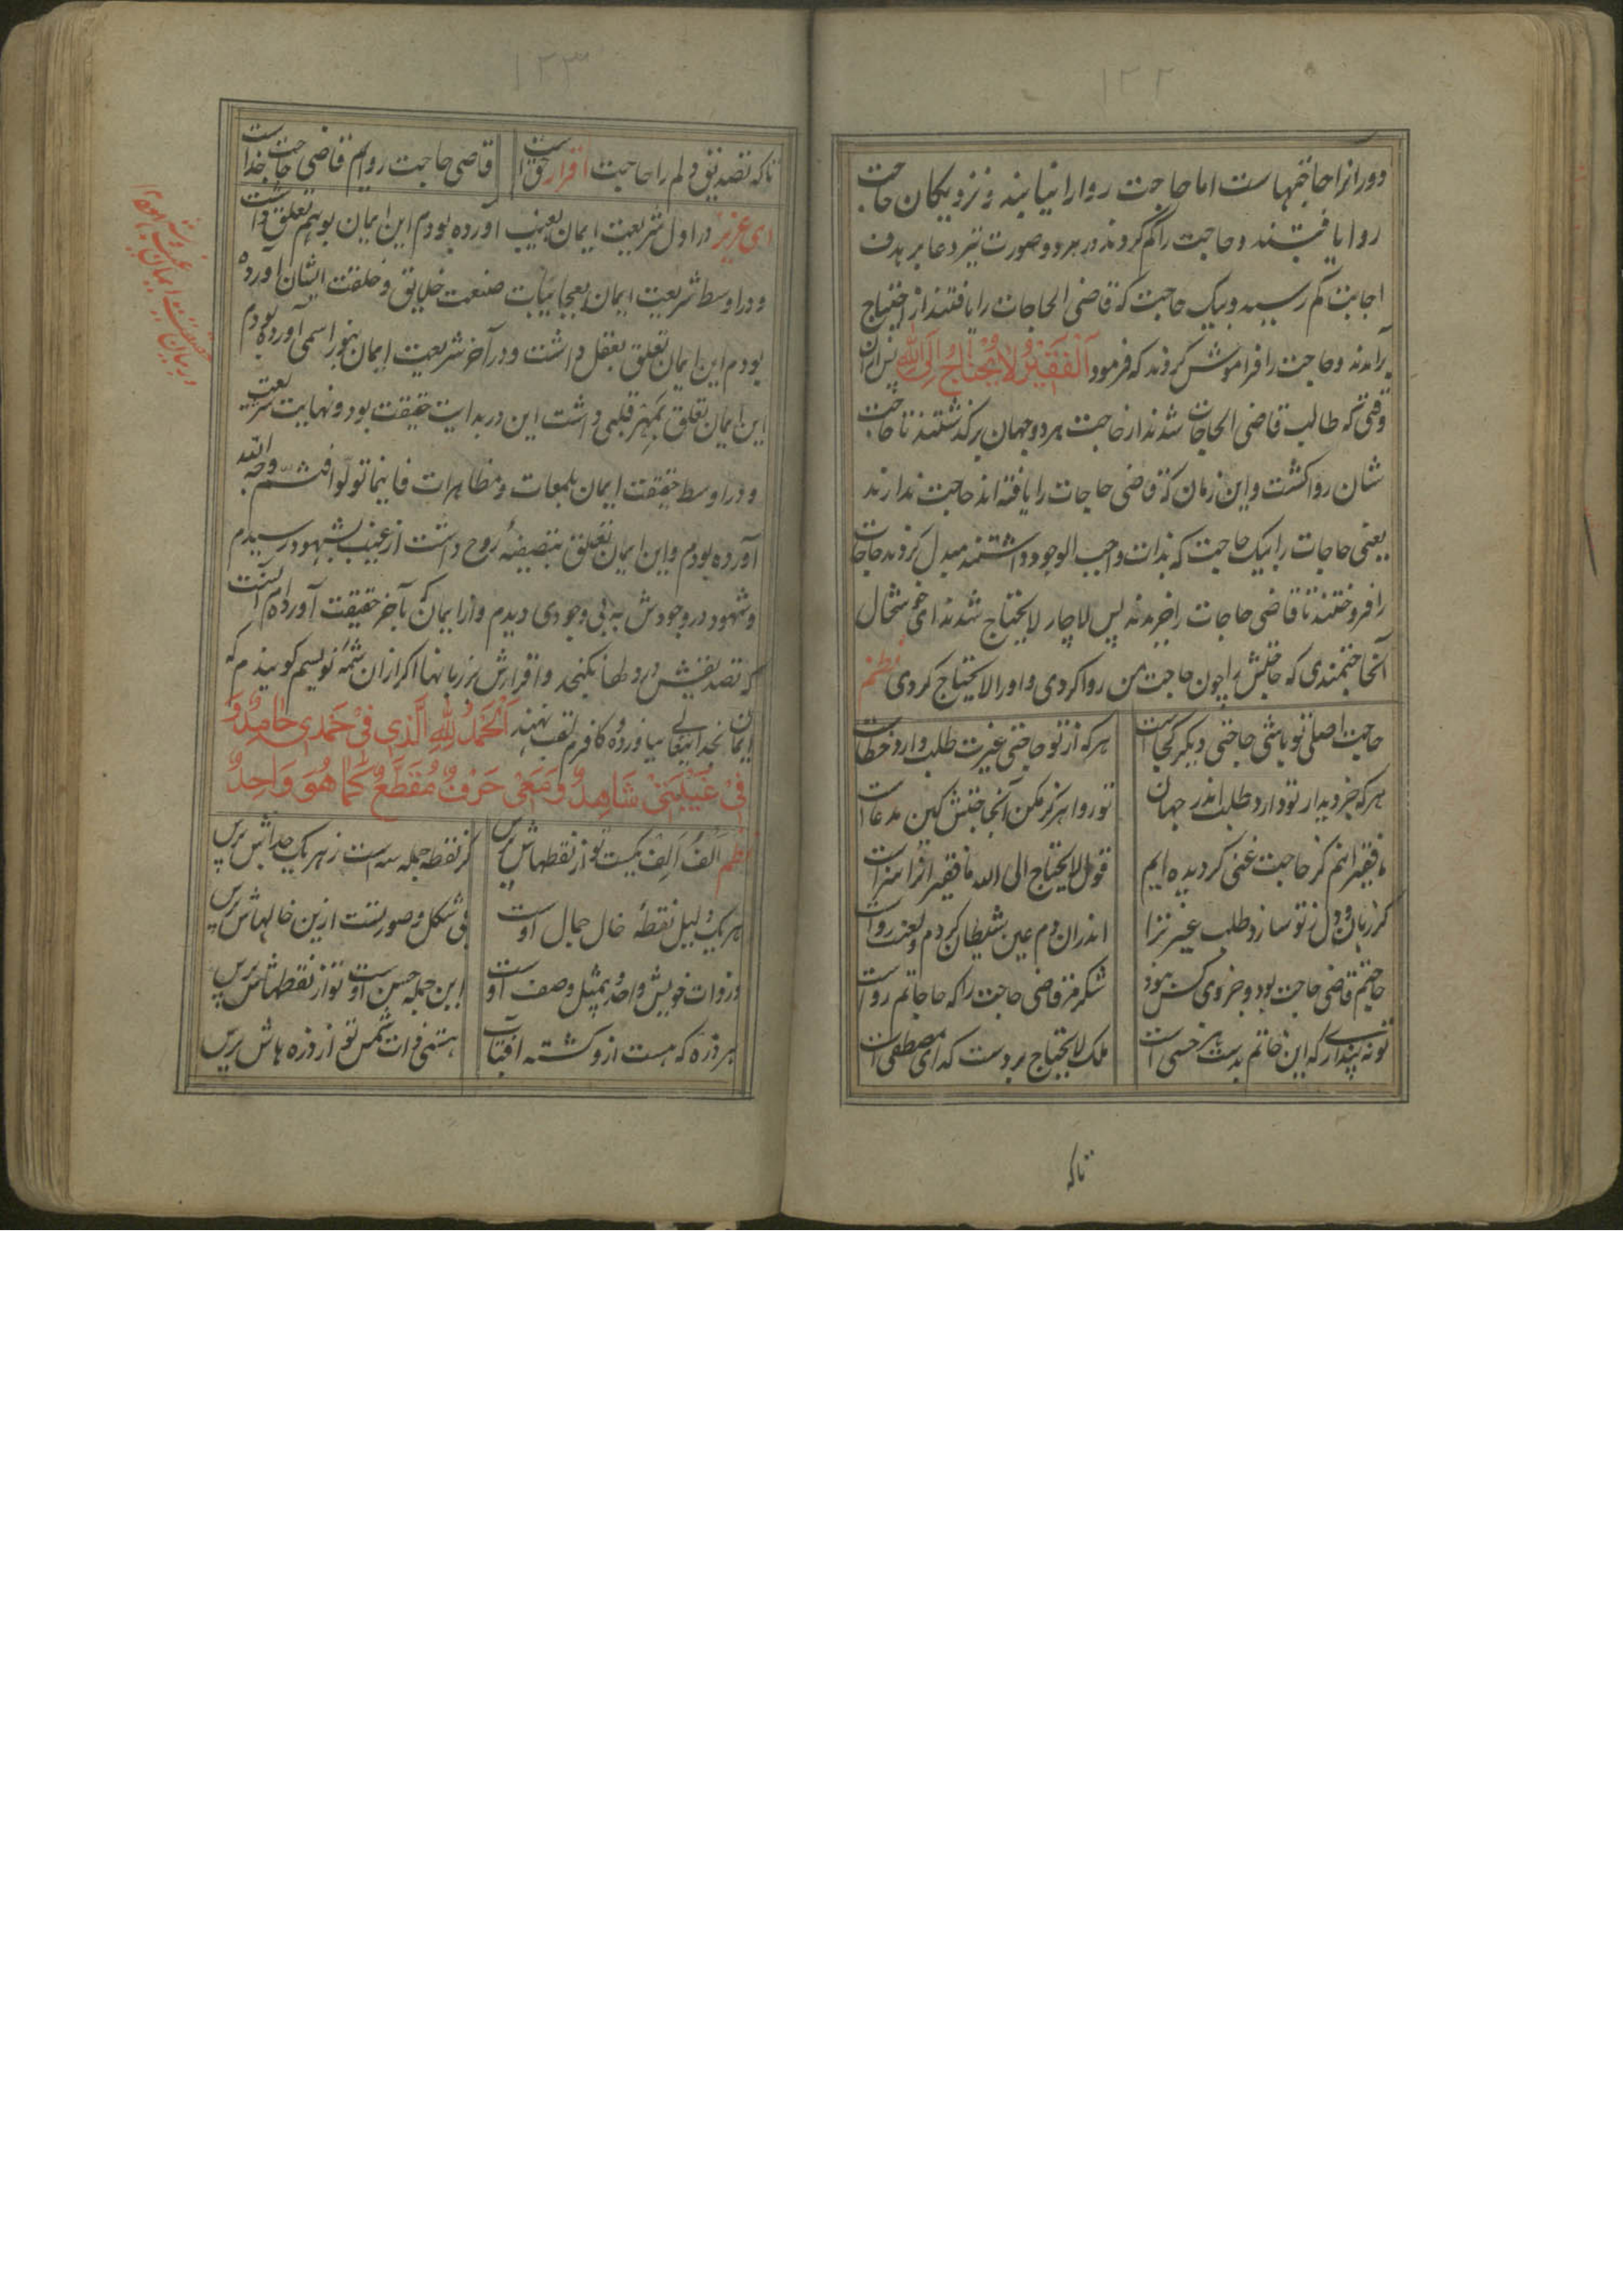 ۱۲۲
دورانرا حاجتهاست اما حاجت روا را نیابند و نزدیکان حاجت
روا یافتند و حاجت را گم کردند در هر دو صورت تیر دعا بر هدف
اجابت کم رسید و بیک حاجت که قاضی الحاجات را یافتند از احتیاج
برآمدند و حاجت را فراموش کردند که فرمود اَلْفَقِیْرُ لَا یَحْتَاجُ اِلَی اللّٰهِ پس از آن
وقتی که طالب قاضی الحاجات شدند از حاجت هر دو جهان برگذشتند تا حاجت
شان روا گشت و این زمان که قاضی حاجات را یافته اند حاجت ندارند
یعنی حاجات را بیک حاجت که بذات واجب الوجود داشتند مبدل کردند حاجات
را فروختند تا قاضی حاجات را خریدند پس لاچار لا یحتاج شدند ای خوشحال
آنحاجتمندی که حاجتش را چون حاجت من روا کردی و او را لا یحتاج کردی نظم
حاجت اصلی تو باشی حاجتی دیگر کجاست
هر که از تو حاجتی غیرت طلب دارد خطاست
هر که جز دیدار تو دارد طلب اندر جهان
تو روا هرگز مکن آنحاجتش کین مدعاست
ما فقیرانیم کز حاجت غنی گردیده ایم
قول لا یحتاج الی الله ما فقیرانرا سزاست
گر زبان و دل ز تو سازد طلب غیر ترا
اندران دم عین شیطان گردم و لعنت رواست
حاجتم قاضی حاجت بود و جز وی کس نبود
شکر مر قاضی حاجت را که حاجاتم رواست
تو نه پنداری که این خاتم بدست هر خسی است
ملک لا یحتاج بر دست گدای مصطفی است
تاکه
۱۲۳
تاکه تصدیق دلم را حاجت اقرار حق است
قاضی حاجت روایم قاضی حاجت خداست
ای عزیز در اول شریعت ایمان بغیب آورده بودم این ایمان بوهم تعلق داشت
و در اوسط شریعت ایمان بعجایبات صنعت خلایق و خلقت ایشان آورده
بودم این ایمان تعلق بعقل داشت و در آخر شریعت ایمان بنور اسمی آورده بودم
این ایمان تعلق بمهر قلبی داشت این در بدایت حقیقت بود و نهایت شریعت
و در اوسط حقیقت ایمان بلمعات و مظاهرات فاینما تولوا فثم وجه الله
آورده بودم و این ایمان تعلق بتصفیهٔ روح داشت از غیب بشهود رسیدم
و شهود در وجودش به بی وجودی دیدم و از ایمان که بآخر حقیقت آورده‌ام آنست
که تصدیقش در دلها نگنجد و اقرارش بر زبانها اگر از آن شمهٔ نویسم گویندم که
ایمان بخدایتعالی نیاورده کافرم لقب نهند اَلْحَمْدُ لِلّٰهِ الَّذِی فِیْ حَمْدِی حَامِدٌ وَ
فِیْ غَیْبَتِیْ شَاهِدٌ وَ مَعَیْ حَرْفٌ مُقَطَّعٌ کَمَا هُوَ وَاحِدٌ
نظم اَلْفُ اَلِف یکیست تو از نقطهاش پرس
کز نقطه جمله سه است ز هر یک جداش پرس
هر یک دلیل نقطهٔ خال جمال اوست
بی شکل و صورتست ازین خالهاش پرس
در ذات خویش واحد و بیمثل وصف اوست
این جمله حسن اوست تو از نقطهاش پرس
هر ذره که هست ازو گشته آفتاب
هستی ذات شمس تو از ذره هاش پرس